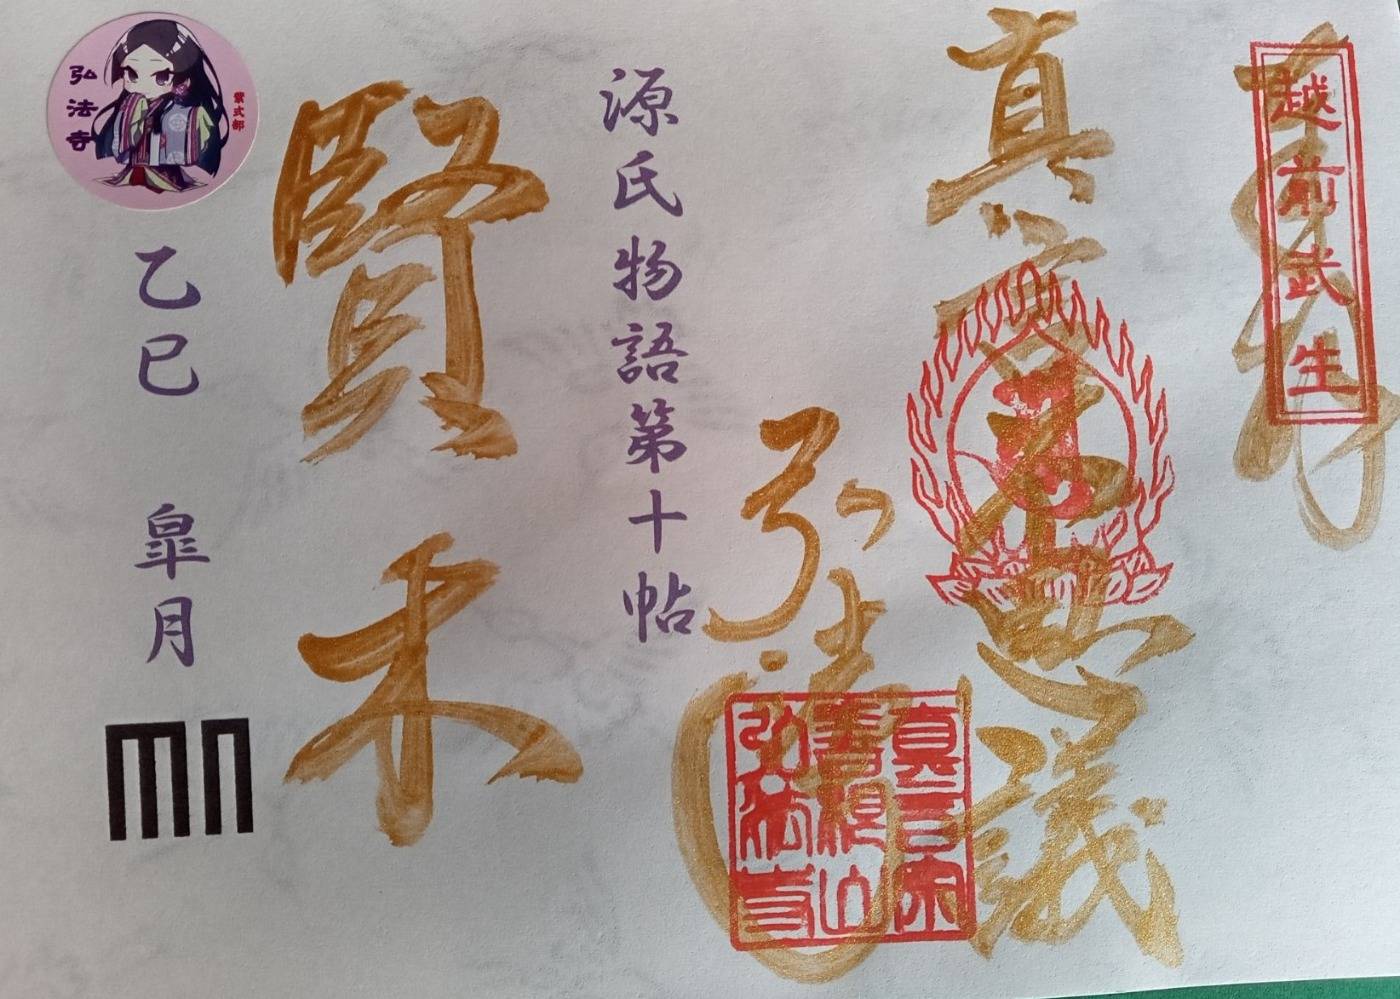 奉拝
越前武生
真言不思議
弘法寺
真言宗
善根山
弘法寺
源氏物語第十帖
賢木
弘法寺
紫式部
乙巳 皐月